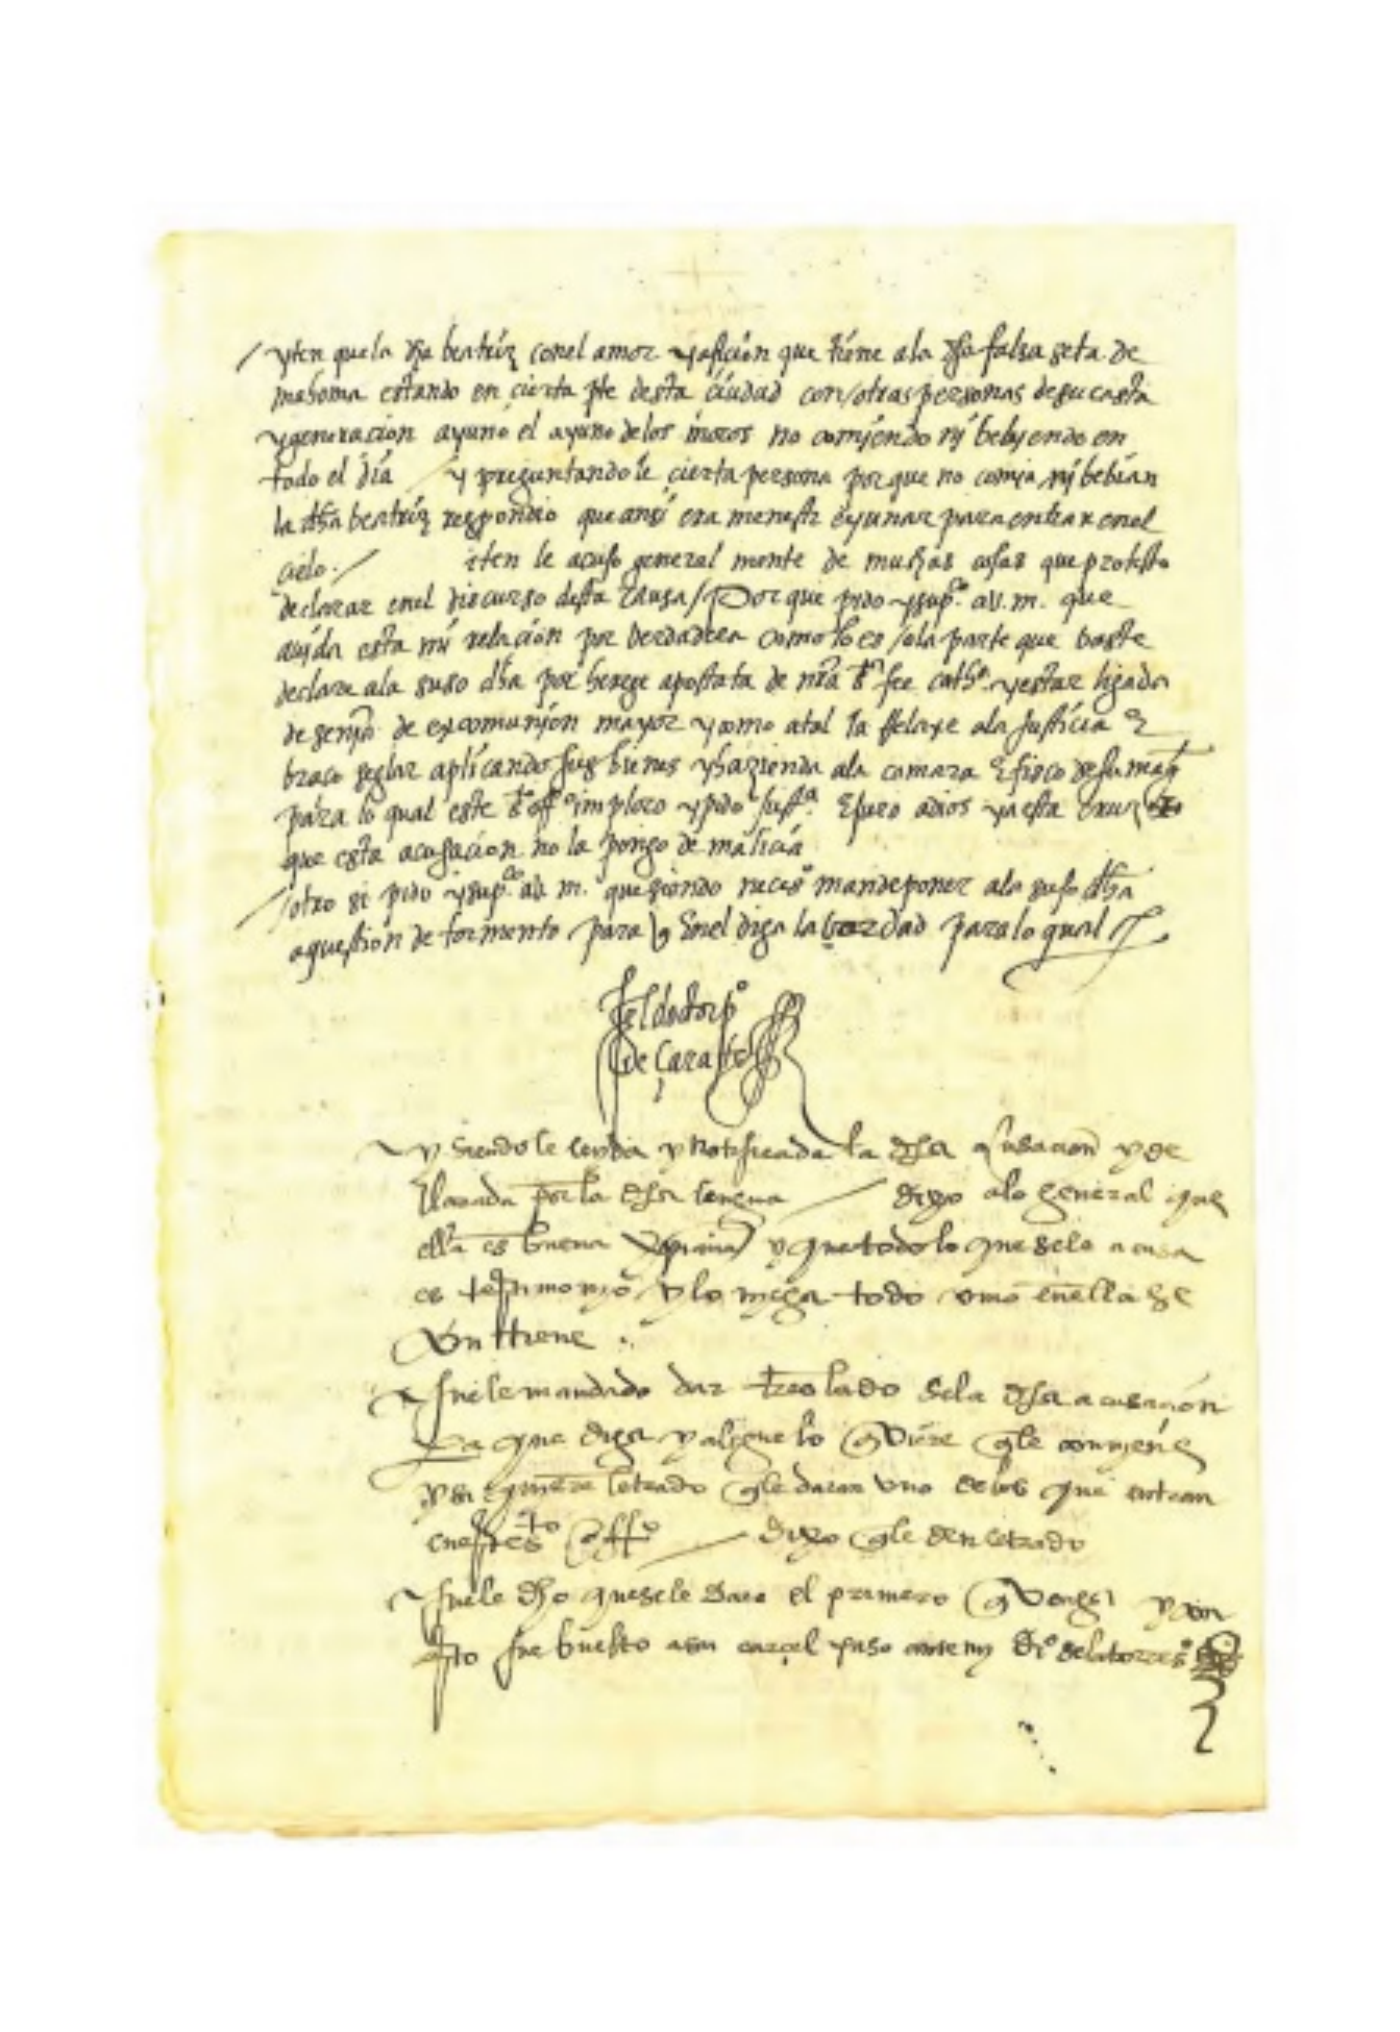 yten que la dha beatriz con el amor y aficion que tiene a la dha falsa seta de
mahoma estando en cierta pte desta ciudad con otras personas de su casta
y generacion ayuno el ayuno de los moros no comiendo nj bebjendo en
todo el dia / y preguntandole cierta persona por que no comja nj bebian
la dha beatriz respondio que ansi era menestr ayunar para entrar en el
cielo . / iten le acuso general mente de muchas cosas que protesto
declarar en el discurso desta causa / Por que pido y sup.co a v. m. que
avida esta mi relacion por berdadera como lo es / o la parte que baste
declare a la suso dha por herege apostata de nra s.ta fee cath.a y estar ligada
de senja de excomunjon mayor y como a tal la rrelaxe a la justicia e
braco seglar aplicando sus bienes y hazienda a la camara e fisco de su mag.t
para lo qual este s.to off.o imploro y pido just.a E juro a dios y a esta cruz
que esta acusacion no la pongo de malicia
/ otro si pido y sup.co a v. m. que siendo neces.o mande poner a la suso dha
a question de tormento para q en el diga la verdad para lo qual
el doctor p.o
de Çarate
y siendole leyda y notificada la dha acusacion y de
llarada por la dha lengua / dixo a lo general que
ella es buena xpiana y que todo lo que se le acusa
es testimonjo y lo njega todo como en ella se
contiene .
fuele mandado dar treslado de la dha acusacion
Pa que diga y alegue lo q viere q le convjene
y si qujere letrado q le daran uno de los que entran
en este s.to off.o / dixo q le den letrado
fuele dho que se le dara el primero q venga y con
tto fue buelto a su carcel paso ante mj di.o de la torre s.o